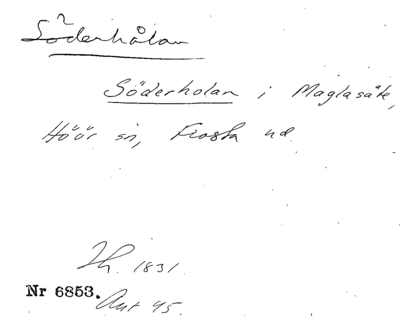 2
Söderhålan
Söderholan i Maglasäte,
Höör sn, Frosta hd.
Lh. 1831.
Nr 6853.
Ant 45.